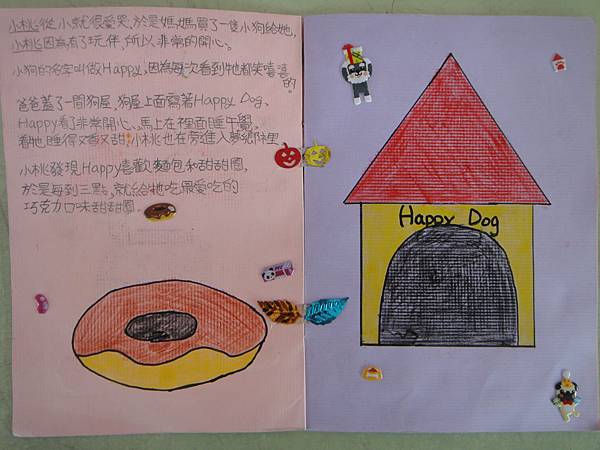 小桃從小就很愛哭,於是媽媽買了一隻小狗給她,
小桃因為有了玩伴,所以非常的開心。
小狗的名字叫做Happy,因為每次看到牠都笑嘻嘻
的。
爸爸蓋了一間狗屋,狗屋上面寫著Happy Dog、
Happy看了非常開心、馬上在裡面睡午覺。
看牠睡得又香又甜!小桃也在旁進入夢鄉裡。
小桃發現Happy喜歡麵包和甜甜圈,
於是每到三點,就給牠吃最愛吃的
巧克力口味甜甜圈。
Happy Dog